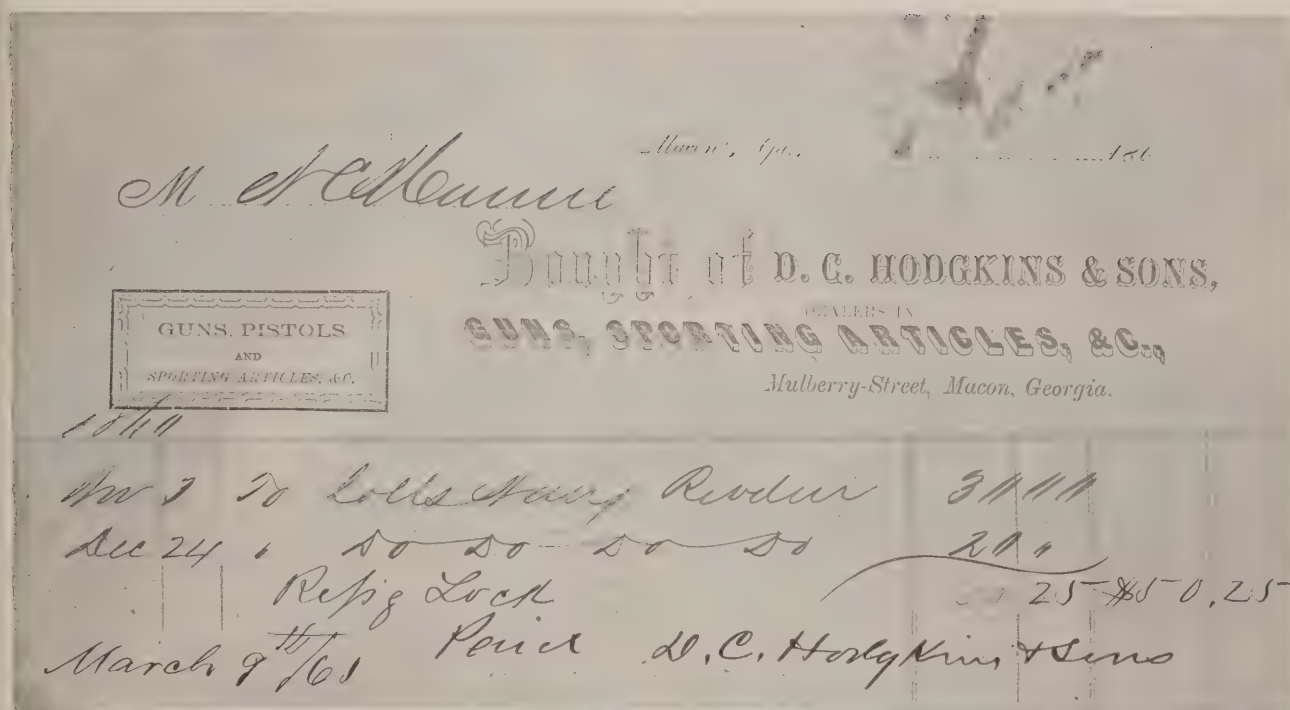 Macon, Ga., 186
M N C Munroe
Bought of D. C. HODGKINS & SONS,
DEALERS IN
GUNS, SPORTING ARTICLES, &C.,
Mulberry-Street, Macon, Georgia.
GUNS. PISTOLS
AND
SPORTING ARTICLES, &C.
1860
Nov 3 To Colts Navy Revolver 30 00
Dec 24 " Do Do Do Do 20 "
Repg Lock 25 $50.25
March 9th/61 Paid D. C. Hodgkins & Sons